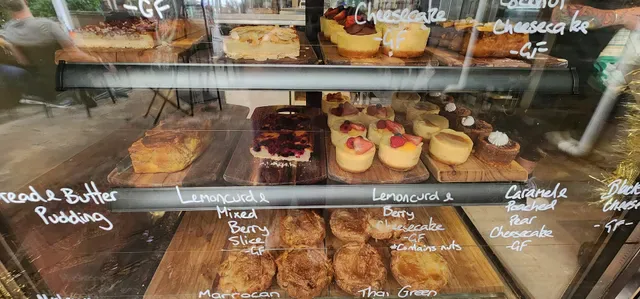 -GF
Cheesecake
-GF
Cheesecake
-GF
Breade Butter
Pudding
Lemoncurd &
Mixed
Berry
Slice
-GF
Lemoncurd &
Berry
Cheesecake
-GF
*Contains nuts
Caramel &
Poached
Pear
Cheesecake
-GF
-GF
Marrocan
Thai Green